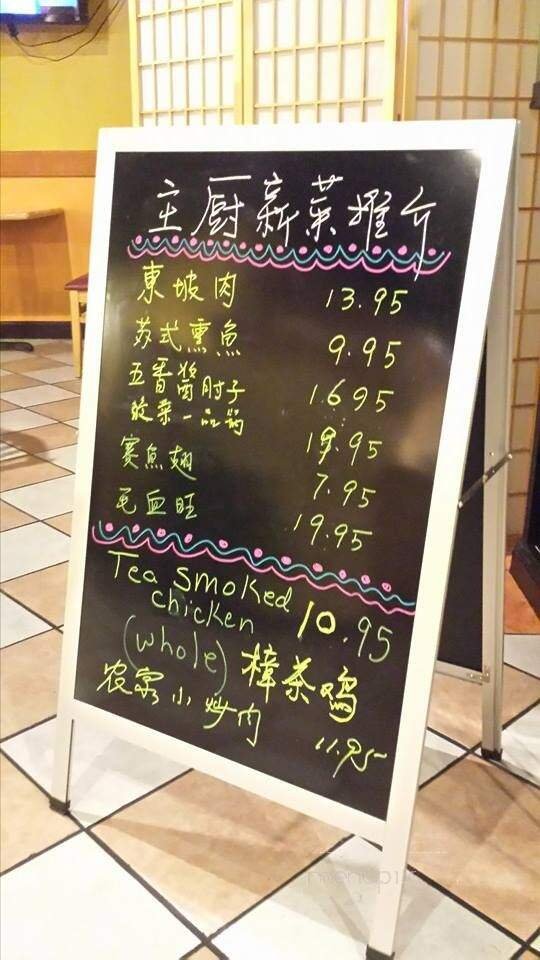 主厨新菜推介
東坡肉 13.95
苏式熏魚 9.95
五香酱肘子 16.95
酸菜一品锅 18.95
赛魚翅 7.95
毛血旺 19.95
Tea smoked
chicken 10.95
(whole) 樟茶鸡
农家小炒肉 11.95